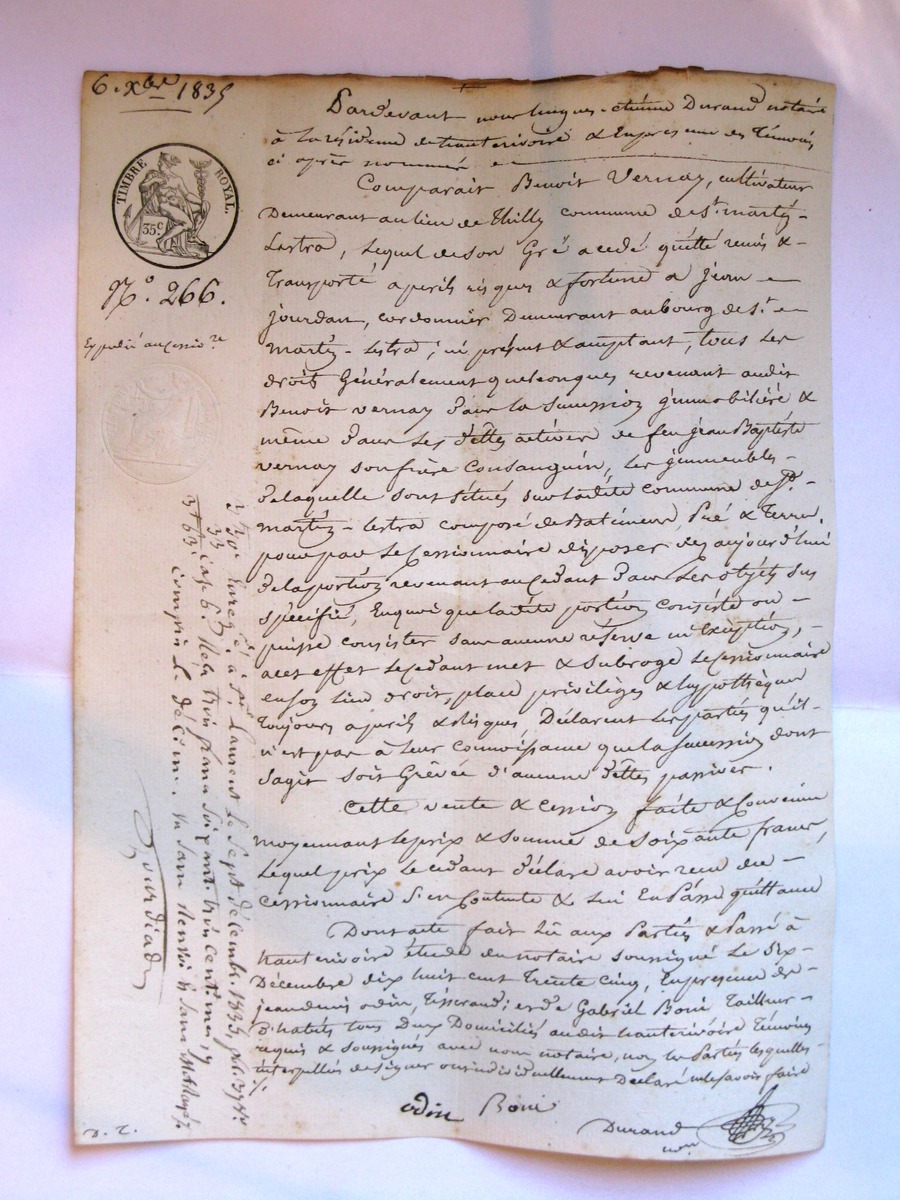 6. Xbre 1835
TIMBRE ROYAL.
35c
N.º 266.
Expédié au cessio.re
Pardevant nous hugues-étienne Durand notaire
à la résidence de hauterivoire & En presence des Témoins
ci après nommés
Comparait Benoit Vernay, cultivateur
Demeurant au lieu de Thilly commune de St. martin-
Lestra, Lequel de son Gré a cedé quitté remis &
Transporté a perils risques & fortune a jean
jourdan, cordonnier Demeurant au bourg de St.
martin-Lestra, ici présent & acceptant, tous Les
droits Généralement quelconques revenant audit
Benoit vernay dans la Succession jmmobiliére &
même dans Les dettes actives de feu jean Baptiste
vernay son frère Consanguin, Les jmmeubles
de laquelle sont situés sur ladite commune de St.
martin-Lestra composé de Batiment, Pré & Terre,
pour par Le Cessionnaire disposer dez aujourd'hui
de la portion revenant au Cedant dans Les objets sus
spécifié, En quoi que ladite portion consiste ou
puisse consister sans aucune réserve ni Exception,
a cet effet Le Cedant met & subroge Le Cessionnaire
en son lieu droit, place priviléges & hypothèques
Toujours a perils & risques, Déclarent Les parties qu'il
n'est pas à Leur connoissance que la succession dont
sagit soit Grêvée d'aucune dettes passives.
Cette vente & Cession faite & Convenue
moyennant Le prix & somme de soixante francs,
Lequel prix Le cedant déclare avoir recu du
cessionnaire S'en Contente & Lui En Passe quittance
Dont acte fait Lû aux Parties & Passé à
hauterivoire étude du notaire soussigné Le six
Décembre dix huit cent Trente Cinq, En presence de
jean denis odin, Tisserand; et de Gabriel Boni Tailleur
d'habits tous Deux Domiciliés audit hauterivoire Témoins
requis & soussignés avec nous notaire, non les Parties lesquelles
interpellés de signer ont individuellement Déclaré ne le savoir faire
odin Boni
Durand
nore
Enreg.é à St. Laurent le Sept décembre 1835, fo. 37 Vo.
Case 6. Reçu trois francs Soixante trois centimes, y
Compris le décime.